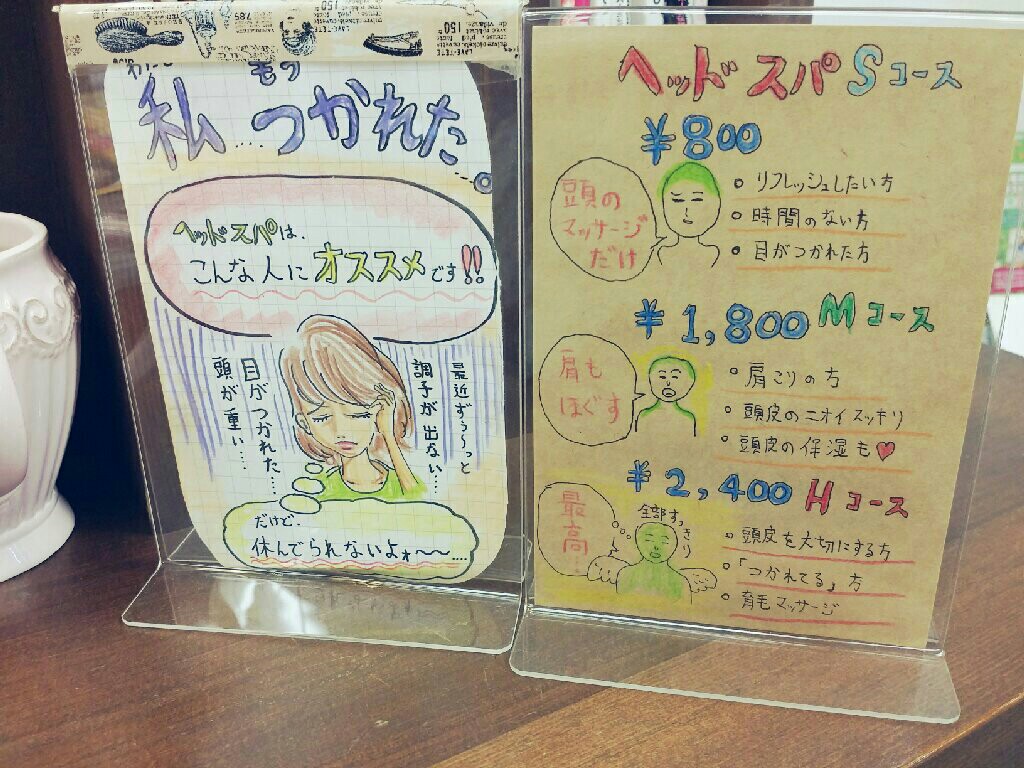 150
785
LAVE-TETE
150
LAVE-TETE
わたし
もう
私…つかれた
ヘッドスパは、
こんな人にオススメです!!
最近ずぅ〜っと
調子が出ない…
目がつかれた…
頭が重い…
だけど、
休んでられないよォ〜〜…
ヘッドスパSコース
¥800
頭の
マッサージ
だけ
・リフレッシュしたい方
・時間のない方
・目がつかれた方
¥1,800 Mコース
肩も
ほぐす
・肩こりの方
・頭皮のニオイスッキリ
・頭皮の保湿も♥
¥2,400 Hコース
最高…
全部すっきり
・頭皮を大切にする方
・「つかれてる」方
・育毛マッサージ